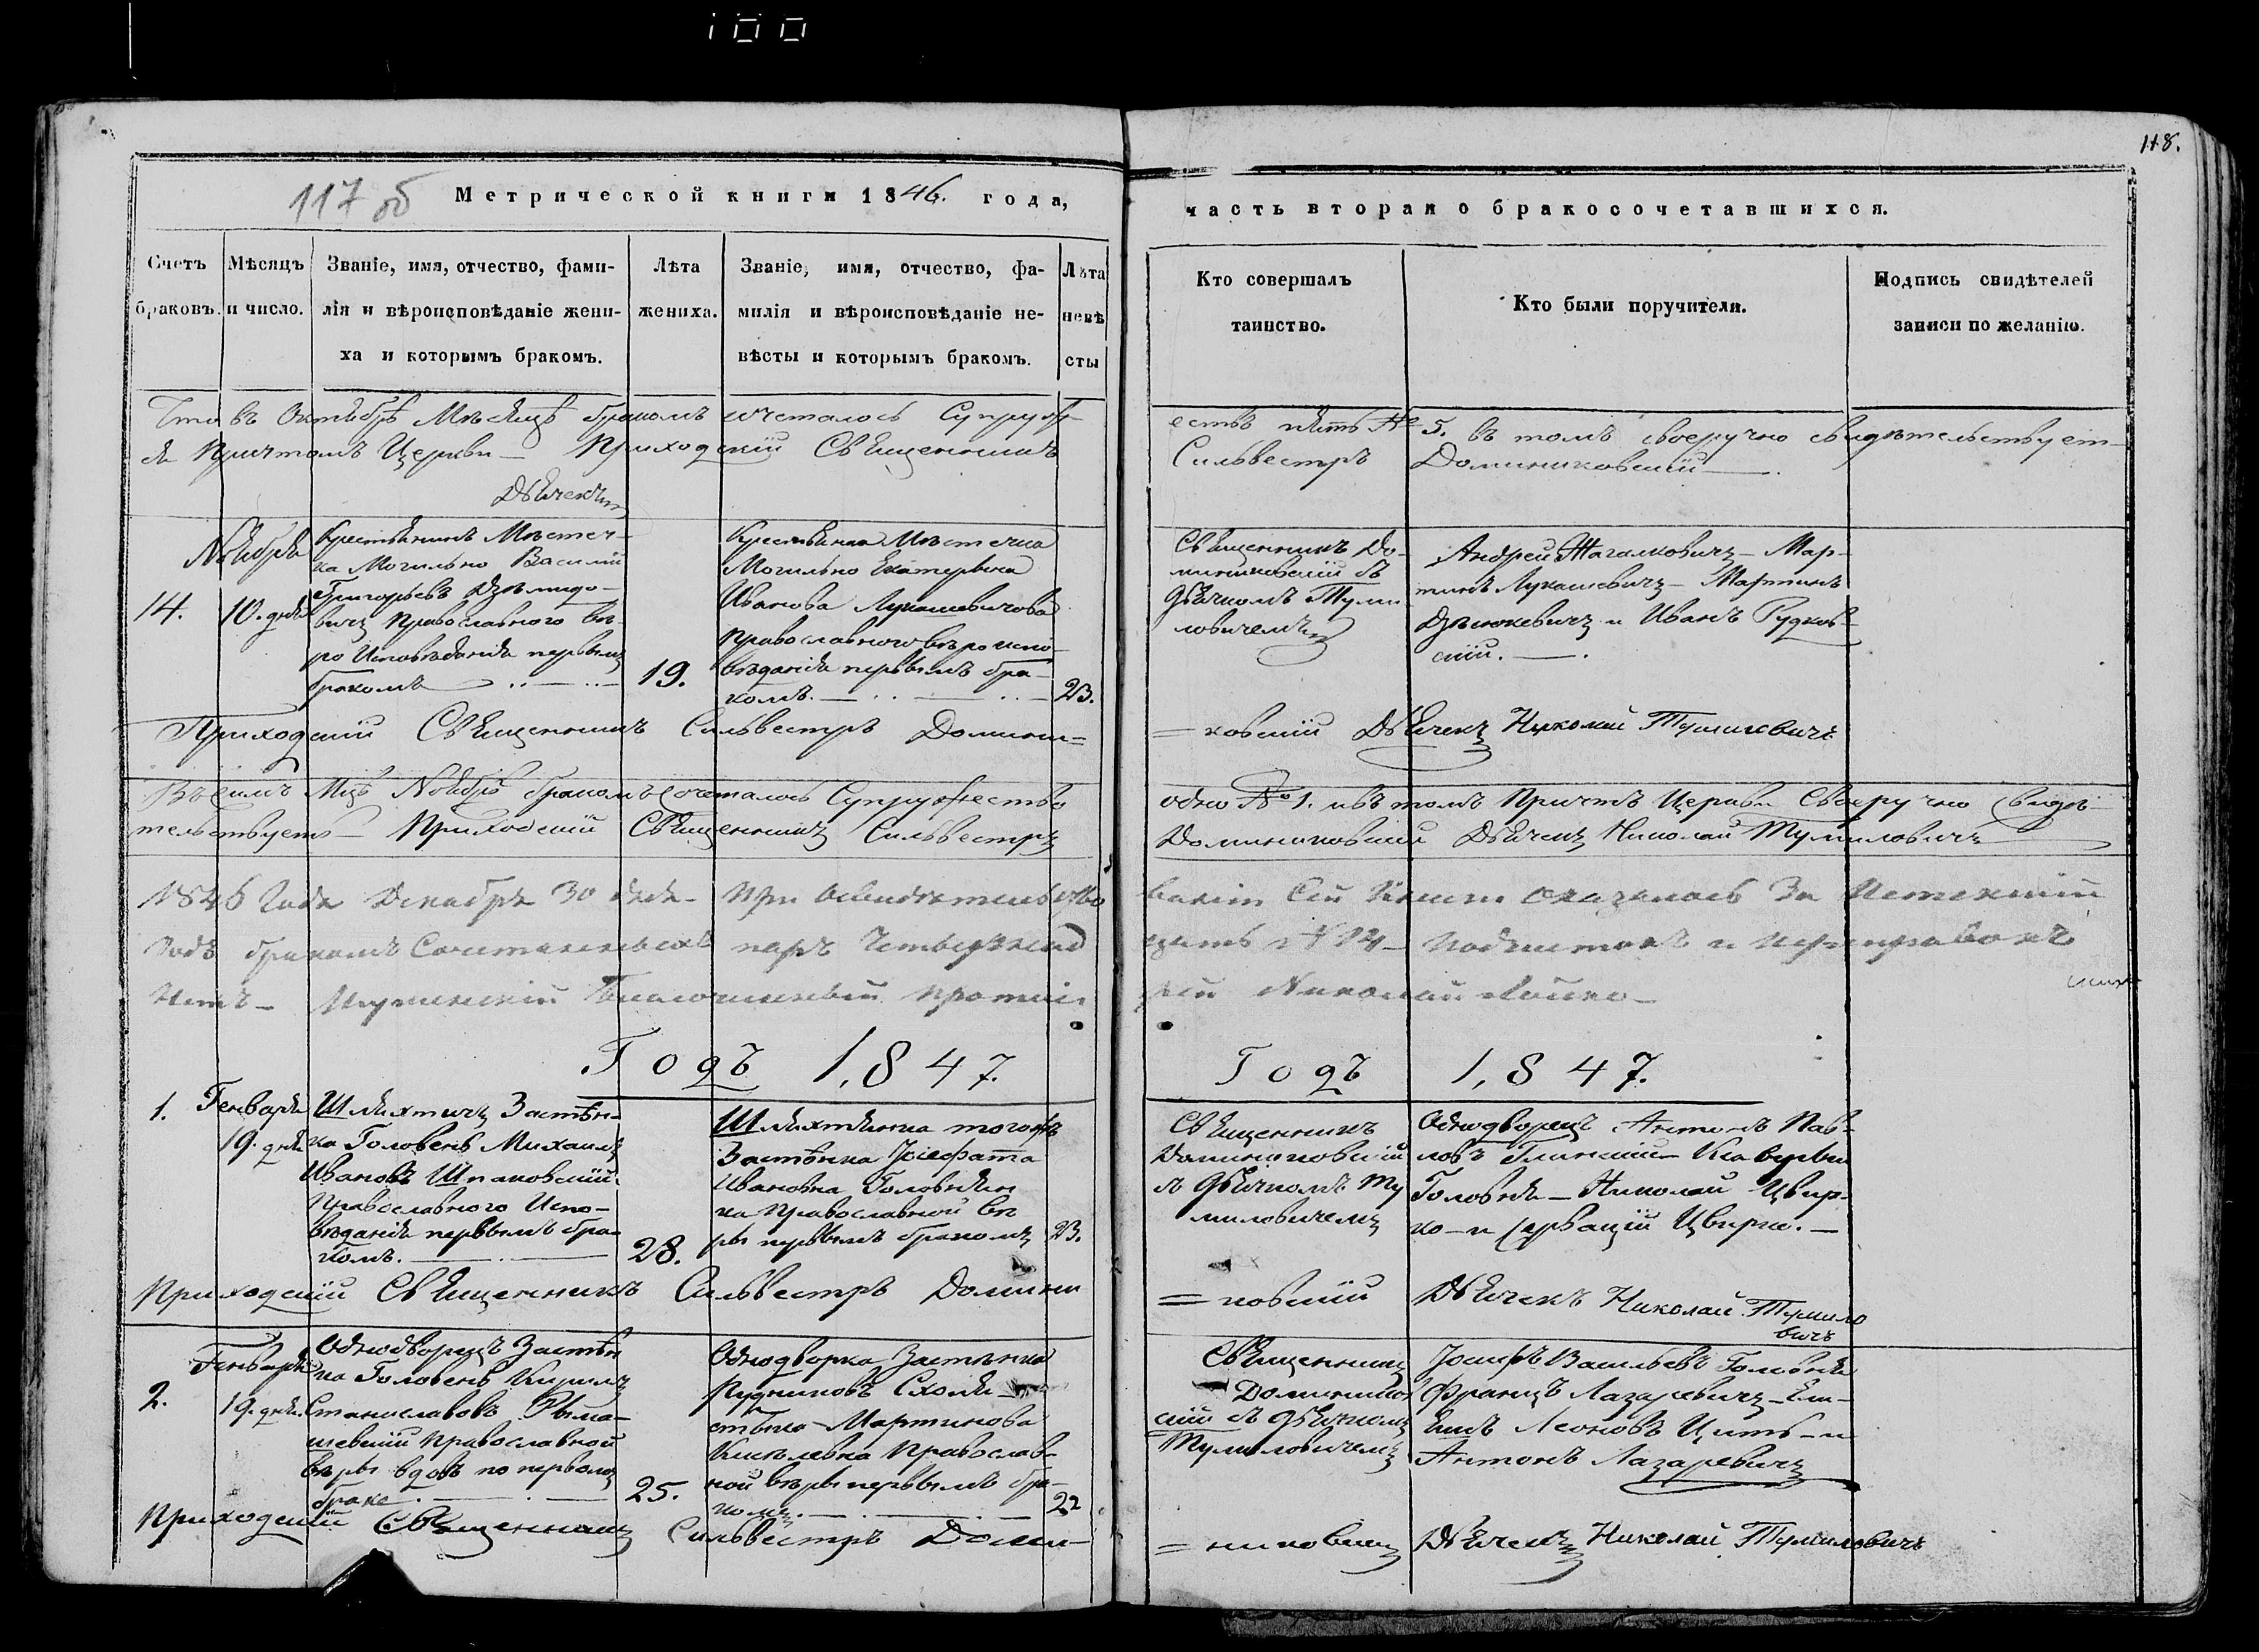 100
118.
117 об
Метрической книги 1846. года,
часть вторая о бракосочетавшихся.
Счетъ браковъ.
Мѣсяцъ и число.
Званіе, имя, отчество, фами-
лія и вѣроисповѣданіе жени-
ха и которымъ бракомъ.
Лѣта жениха.
Званіе, имя, отчество, фа-
милія и вѣроисповѣданіе не-
вѣсты и которымъ бракомъ.
Лѣта невѣ
сты
Кто совершалъ
таинство.
Кто были поручители.
Подпись свидѣтелей
записи по желанію.
Что въ Октябрѣ Мѣсяцѣ бракомъ сочеталось Супруж-
ествъ пять № 5. въ томъ своеручно свидѣтельствует-
ся Причтомъ Церкви — Приходскій Священникъ
Сильвестръ Доминиковскій
Дьячекъ
14.
Ноября
10. дня
Крестьянинъ Мѣстеч-
ка Могильно Василій
Григорьевъ Дземидо-
вичъ Православного вѣ-
ро Исповѣданія первымъ
бракомъ
19.
Крестьянка Мѣстечка
Могильно Екатерина
Иванова Лукашевичова
Православного вѣроиспо-
вѣданія первымъ бра-
комъ.
23.
Священникъ До-
миниковскій съ
дьячкомъ Туми
ловичемъ
Андрей Жагалковичъ — Мар-
тинъ Лукашевичъ — Мартинъ
Дзенюкевичъ и Иванъ Рудков-
скій.
Приходскій Священникъ Сильвестръ Домини=
=ковскій Дьячекъ Николай Тумиловичъ
Въ семъ Мцѣ Ноябрѣ бракомъ сочеталось Супружество
одно № 1. и въ томъ Причтъ Церкви Своеручно Свидѣ
тельствуетъ — Приходскій Священникъ Сильвестръ
Доминиковскій Дьячекъ Николай Тумиловичъ
1846 Года Декабря 30 дня — При Освидѣтельство
ваніи Сей Книги Оказалось За Истекшій
Годъ бракомъ Сочетавшихся паръ Четырнад
цать № 14 — подчистокъ и переправокъ
Нѣтъ — Благочинный Протоіе
рей Николай
Годъ 1847.
Годъ 1847.
1.
Генваря
19. дня
Шляхтичъ Застѣн-
ка Головень Михаилъ
Ивановъ Шпаковскій.
Православного Испо-
вѣданія первымъ бра-
комъ.
28.
Шляхтянка тогожъ
Застѣнка Іосафата
Ивановна Головнян
ка Православной вѣ
ры первымъ бракомъ
23.
Священникъ
Доминиковскій
съ дьячкомъ Ту
миловичемъ
Однодворецъ Антонъ Пав-
ловъ Глинскій — Ксаверый
Головня — Николай Цвир-
ко — и Серваций Цвирко. —
Приходскій Священникъ Сильвестръ Домини
=ковскій Дьячекъ Николай Тумило
вичъ
2.
Генваря
19. дня
Однодворецъ Застѣн
ка Головень Кирилъ
Станиславовъ Рыма-
шевскій Православной
вѣры вдовъ по первомъ
браке.
25.
Однодворка Застѣнка
Рудниковъ Схоля-
стыка — Мартинова
Киселевна Православ-
ной вѣры первымъ бра-
комъ.
22
Священникъ
Домиников
скій съ дьячкомъ
Тумиловичемъ
Іосифъ Васильевъ Головня
Францъ Лазаревичъ —
Леоновъ Цитъ — и
Антонъ Лазаревичъ
Приходскій Священникъ Сильвестръ Доми-
=никовскій Дьячекъ Николай Тумиловичъ